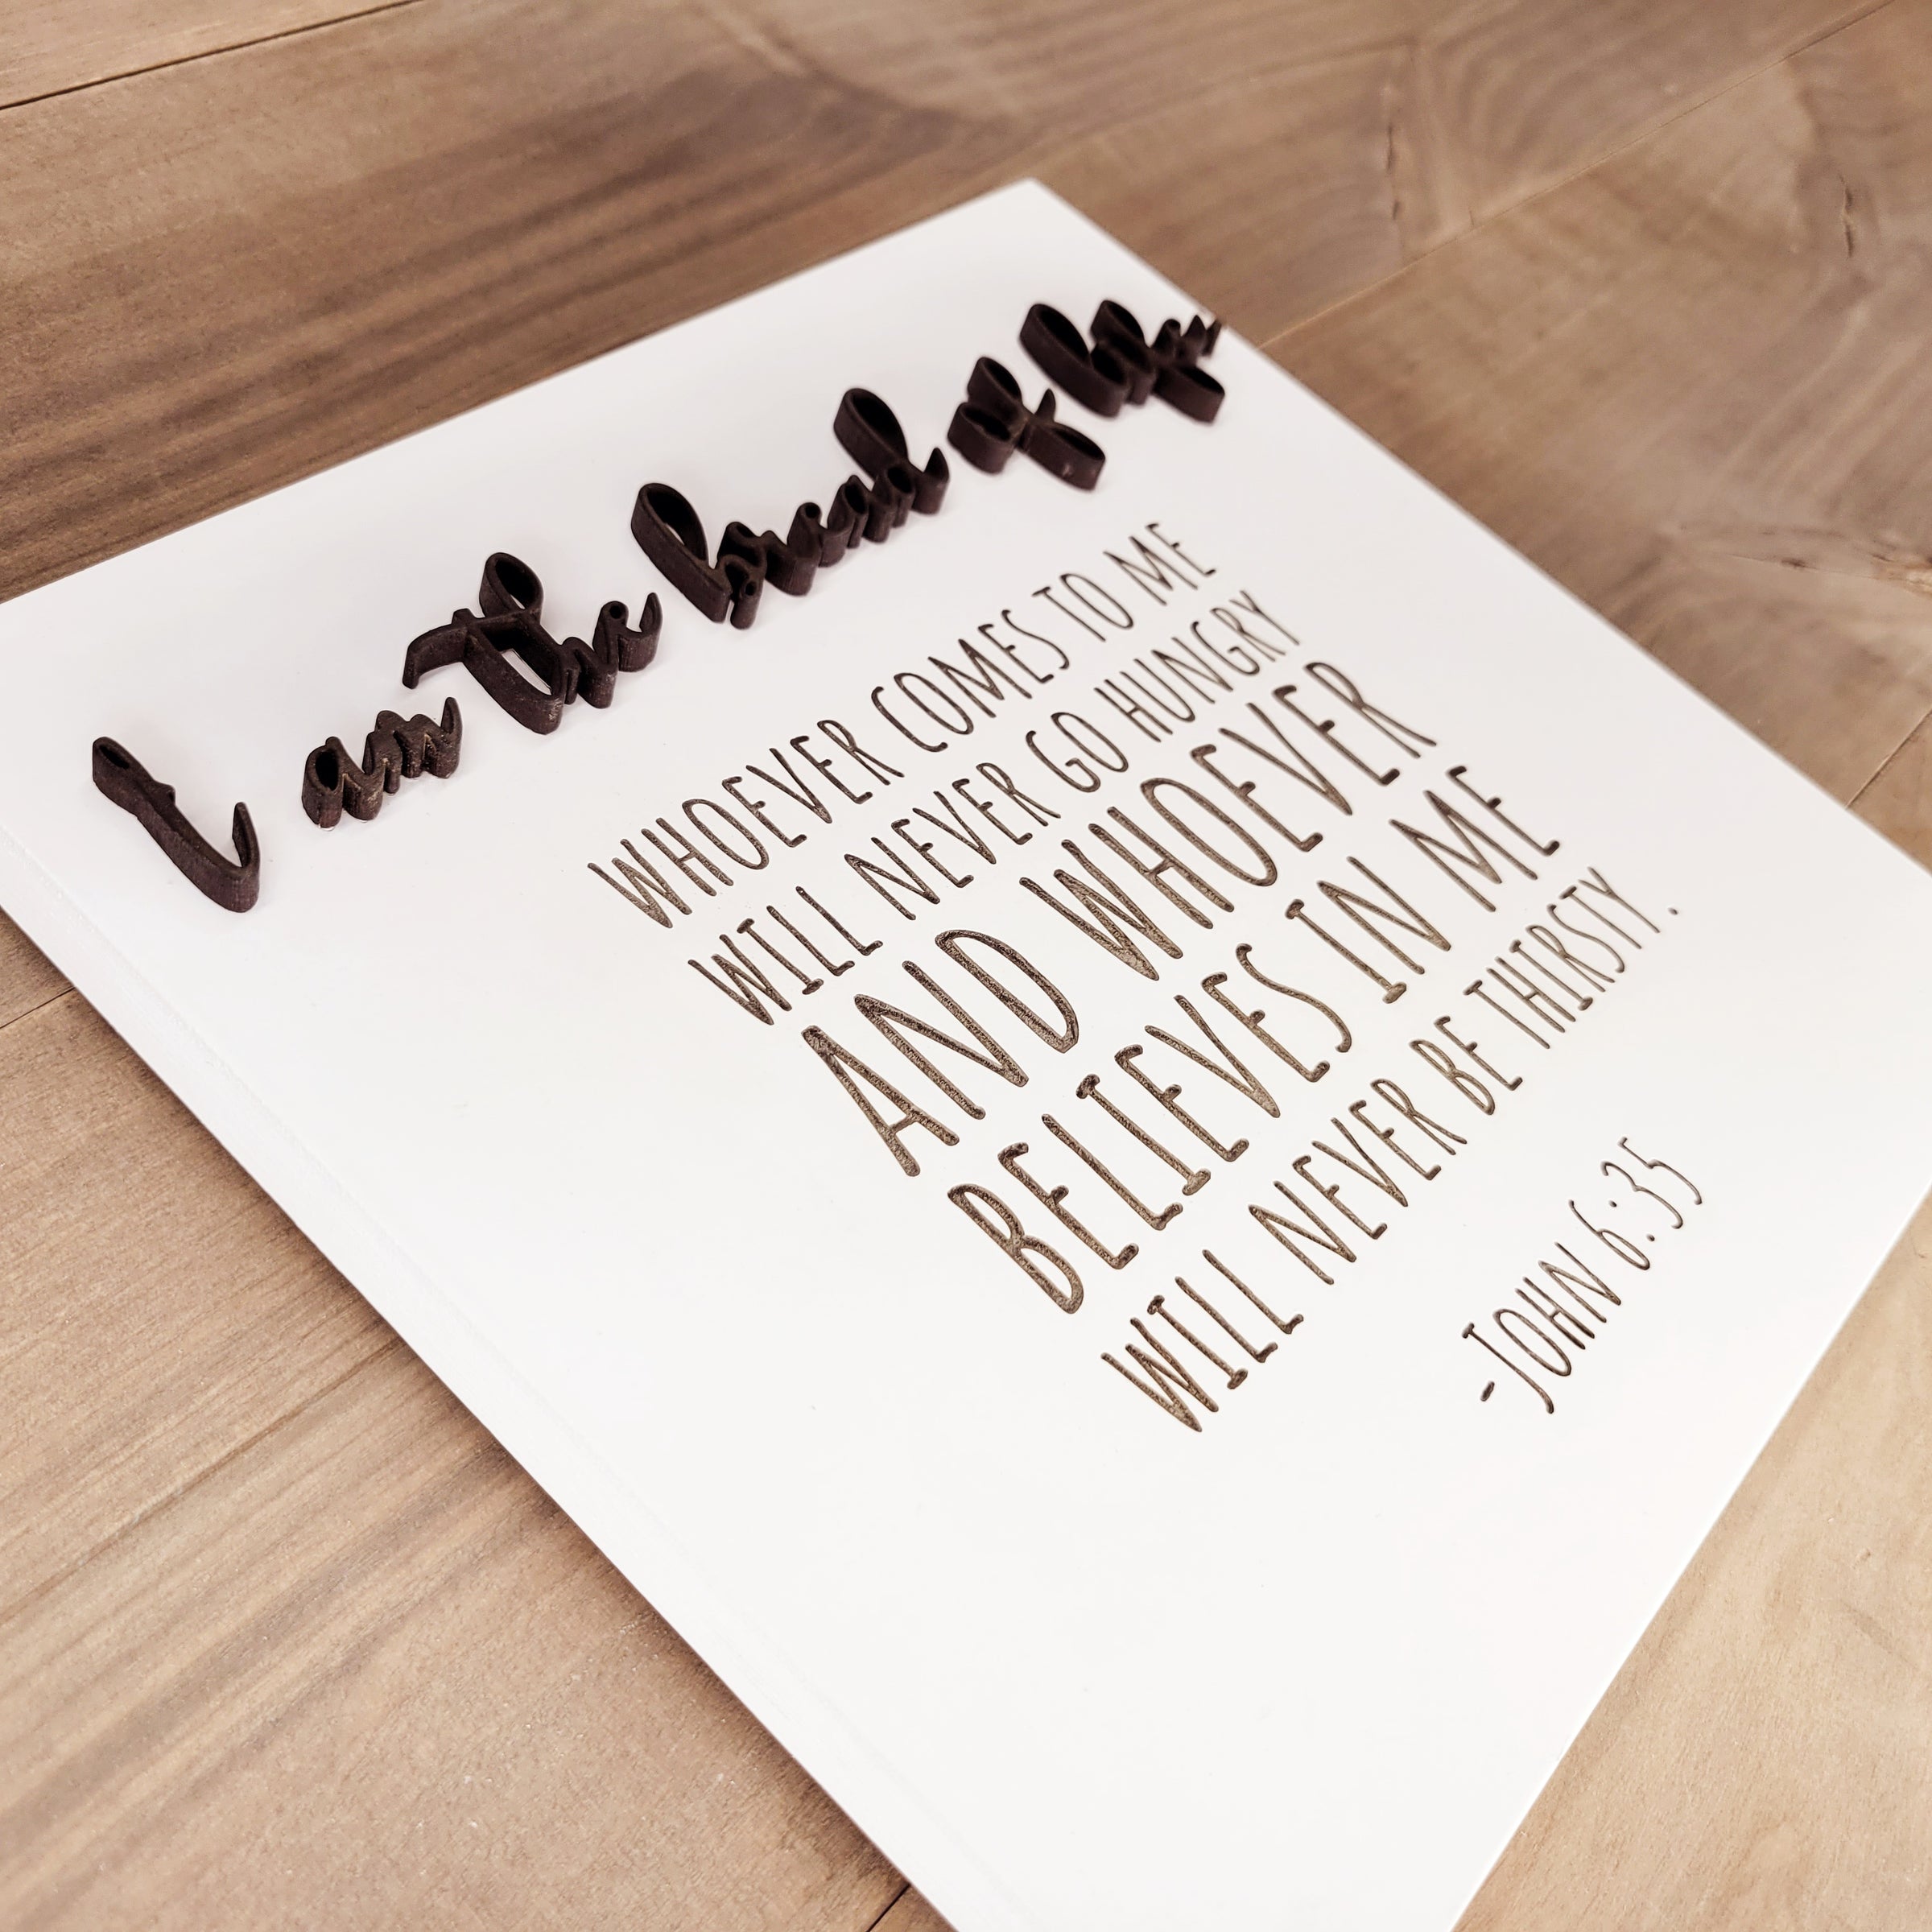 I am the bread of life
WHOEVER COMES TO ME
WILL NEVER GO HUNGRY
AND WHOEVER
BELIEVES IN ME
WILL NEVER BE THIRSTY.
-JOHN 6:35